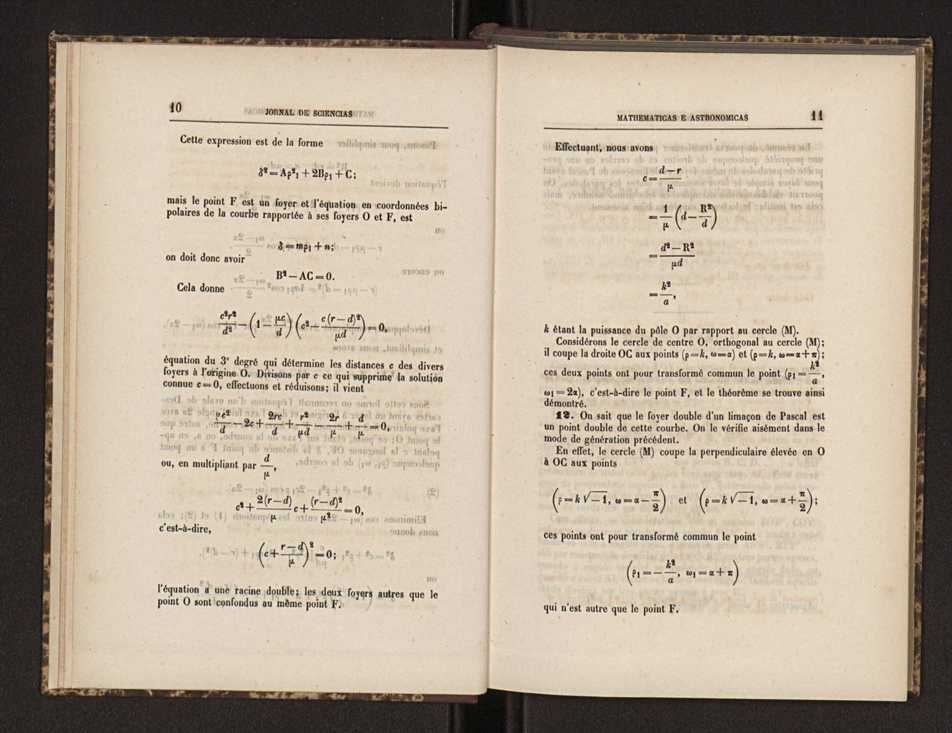 10
JORNAL DE SCIENCIAS
Cette expression est de la forme
δ² = Aρ²₁ + 2Bρ₁ + C;
mais le point F est un foyer et l'équation en coordonnées bi-
polaires de la courbe rapportée à ses foyers O et F, est
δ = mρ₁ + n;
on doit donc avoir
B² — AC = 0.
Cela donne
c²r²/d² — (1 — μc/d) (c² — c(r — d)²/μd) = 0,
équation du 3ᵉ degré qui détermine les distances c des divers
foyers à l'origine O. Divisons par c ce qui supprime la solution
connue c = 0, effectuons et réduisons; il vient
μc²/d — 2c + 2rc/d + r²/μd — 2r/μ + d/μ = 0,
ou, en multipliant par d/μ,
c² + 2(r — d)/μ c + (r — d)²/μ² = 0,
c'est-à-dire,
(c + r — d/μ)² = 0;
l'équation a une racine double; les deux foyers autres que le
point O sont confondus au même point F.
MATHEMATICAS E ASTRONOMICAS
11
Effectuant, nous avons
c = d — r/μ
= 1/μ (d — R²/d)
= d² — R²/μd
= k²/a,
k étant la puissance du pôle O par rapport au cercle (M).
Considérons le cercle de centre O, orthogonal au cercle (M);
il coupe la droite OC aux points (ρ = k, ω = α) et (ρ = k, ω = α + π);
ces deux points ont pour transformé commun le point (ρ₁ = k²/a,
ω₁ = 2α), c'est-à-dire le point F, et le théorème se trouve ainsi
démontré.
12. On sait que le foyer double d'un limaçon de Pascal est
un point double de cette courbe. On le vérifie aisément dans le
mode de génération précédent.
En effet, le cercle (M) coupe la perpendiculaire élevée en O
à OC aux points
(ρ = k √—1, ω = α — π/2) et (ρ = k √—1, ω = α + π/2);
ces points ont pour transformé commun le point
(ρ₁ = — k²/a, ω₁ = α + π)
qui n'est autre que le point F.